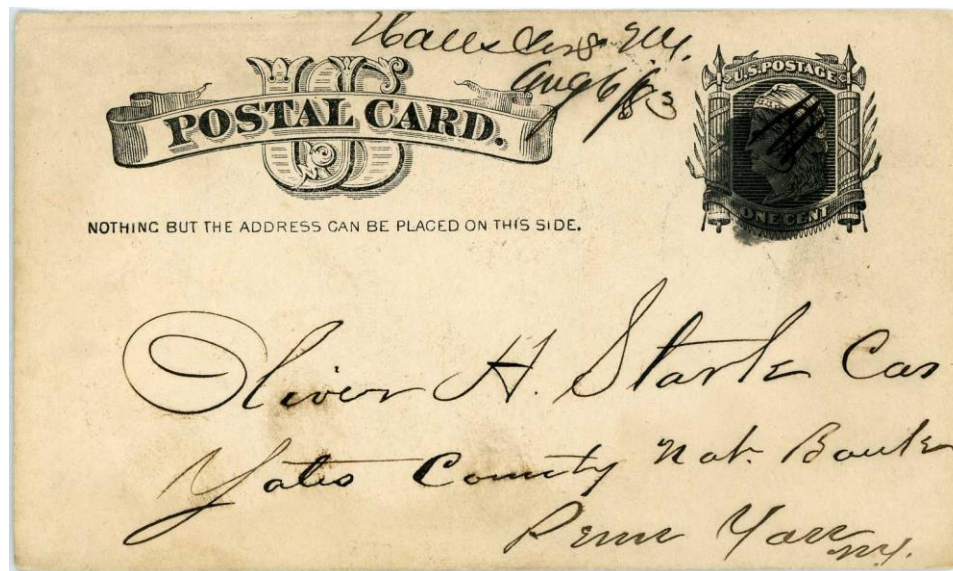 N.Y.
Aug 6/83
US
POSTAL CARD.
U.S. POSTAGE
ONE CENT
NOTHING BUT THE ADDRESS CAN BE PLACED ON THIS SIDE.
Oliver H. Stark Cas
Yates County Nat. Bank
Penn Yan
N.Y.